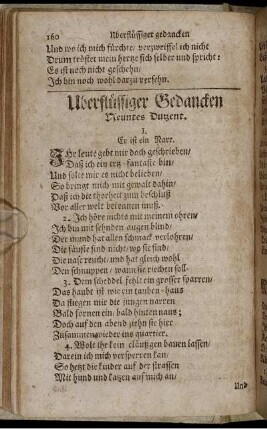 160 Uberflüssiger gedancken
Und wo ich mich fürchte/ verzweiffel ich nicht
Drum tröstet mein hertze sich selber und spricht:
Es ist noch nicht geschehn/
Ich bin noch wohl darzu versehn.
Uberflüssiger Gedancken
Neuntes Dutzent.
I.
Er ist ein Narr.
IHr leute gebt mir doch geschrieben/
Daß ich ein ertz-fantaste bin/
Und solte mir es nicht belieben/
So bringt mich mit gewalt dahin/
Daß ich die thorheit zum beschluß
Vor aller welt bekennen muß.
2. Ich höre nichts mit meinem ohren/
Ich bin mit sehnden augen blind/
Der mund hat allen schmack verlohren/
Die fäuste sind nicht/ wo sie sind;
Die nase reucht/ und hat gleich wohl
Den schnuppen/ wann sie riechen soll.
3. Dem scheddel fehlt ein grosser sparren/
Das haubt ist wie ein tauben-haus
Da fliegen mir die jungen narren
Bald fornen ein/ bald hinten naus;
Doch auf den abend ziehn sie hier
Zusammen wieder ins quartier.
4. Wolt ihr kein cläußgen bauen lassen/
Darein ich mich versperren kan/
So hetzt die kinder auf der strassen
Mit hund und katzen auf mich an/
Und